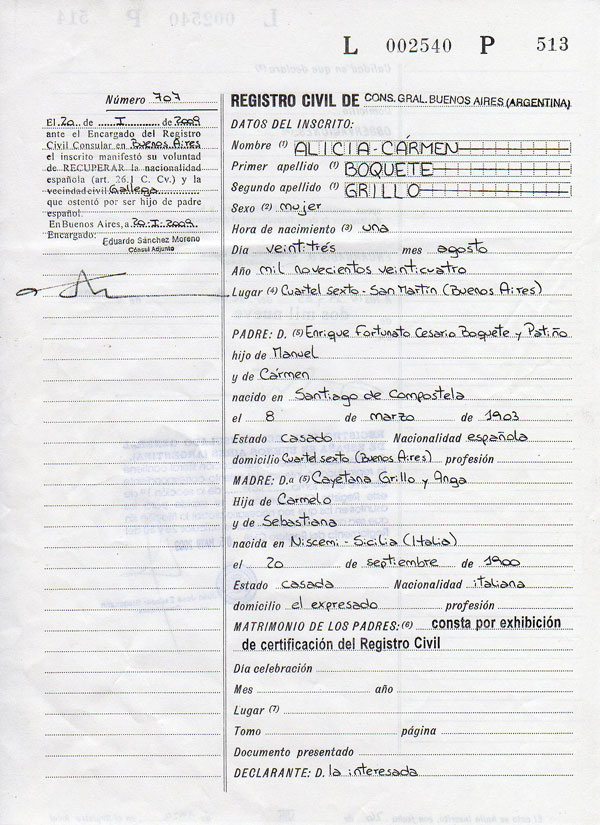 L 002540 P 513
Número 707
El 20 de I de 2009
ante el Encargado del Registro
Civil Consular en Buenos Aires
el inscrito manifestó su voluntad
de RECUPERAR la nacionalidad
española (art. 26.1 C. Cv.) y la
vecindad civil Gallega
que ostentó por ser hijo de padre
español.
En Buenos Aires, a 20-I-2009
Encargado:
Eduardo Sánchez Moreno
Cónsul Adjunto
REGISTRO CIVIL DE CONS. GRAL. BUENOS AIRES (ARGENTINA)
DATOS DEL INSCRITO:
Nombre (1) ALICIA-CÁRMEN
Primer apellido (1) BOQUETE
Segundo apellido (1) GRILLO
Sexo (2) mujer
Hora de nacimiento (3) una
Día veintitrés mes agosto
Año mil novecientos veinticuatro
Lugar (4) Cuartel sexto - San Martín (Buenos Aires)
PADRE: D. (5) Enrique Fortunato Cesario Boquete y Patiño
hijo de Manuel
y de Cármen
nacido en Santiago de Compostela
el 8 de marzo de 1903
Estado casado Nacionalidad española
domicilio Cuartel sexto (Buenos Aires) profesión
MADRE: D.a (5) Cayetana Grillo y Anga
Hija de Carmelo
y de Sebastiana
nacida en Niscemi - Sicilia (Italia)
el 20 de septiembre de 1900
Estado casada Nacionalidad italiana
domicilio el expresado profesión
MATRIMONIO DE LOS PADRES: (6) consta por exhibición
de certificación del Registro Civil
Día celebración
Mes año
Lugar (7)
Tomo página
Documento presentado
DECLARANTE: D. la interesada